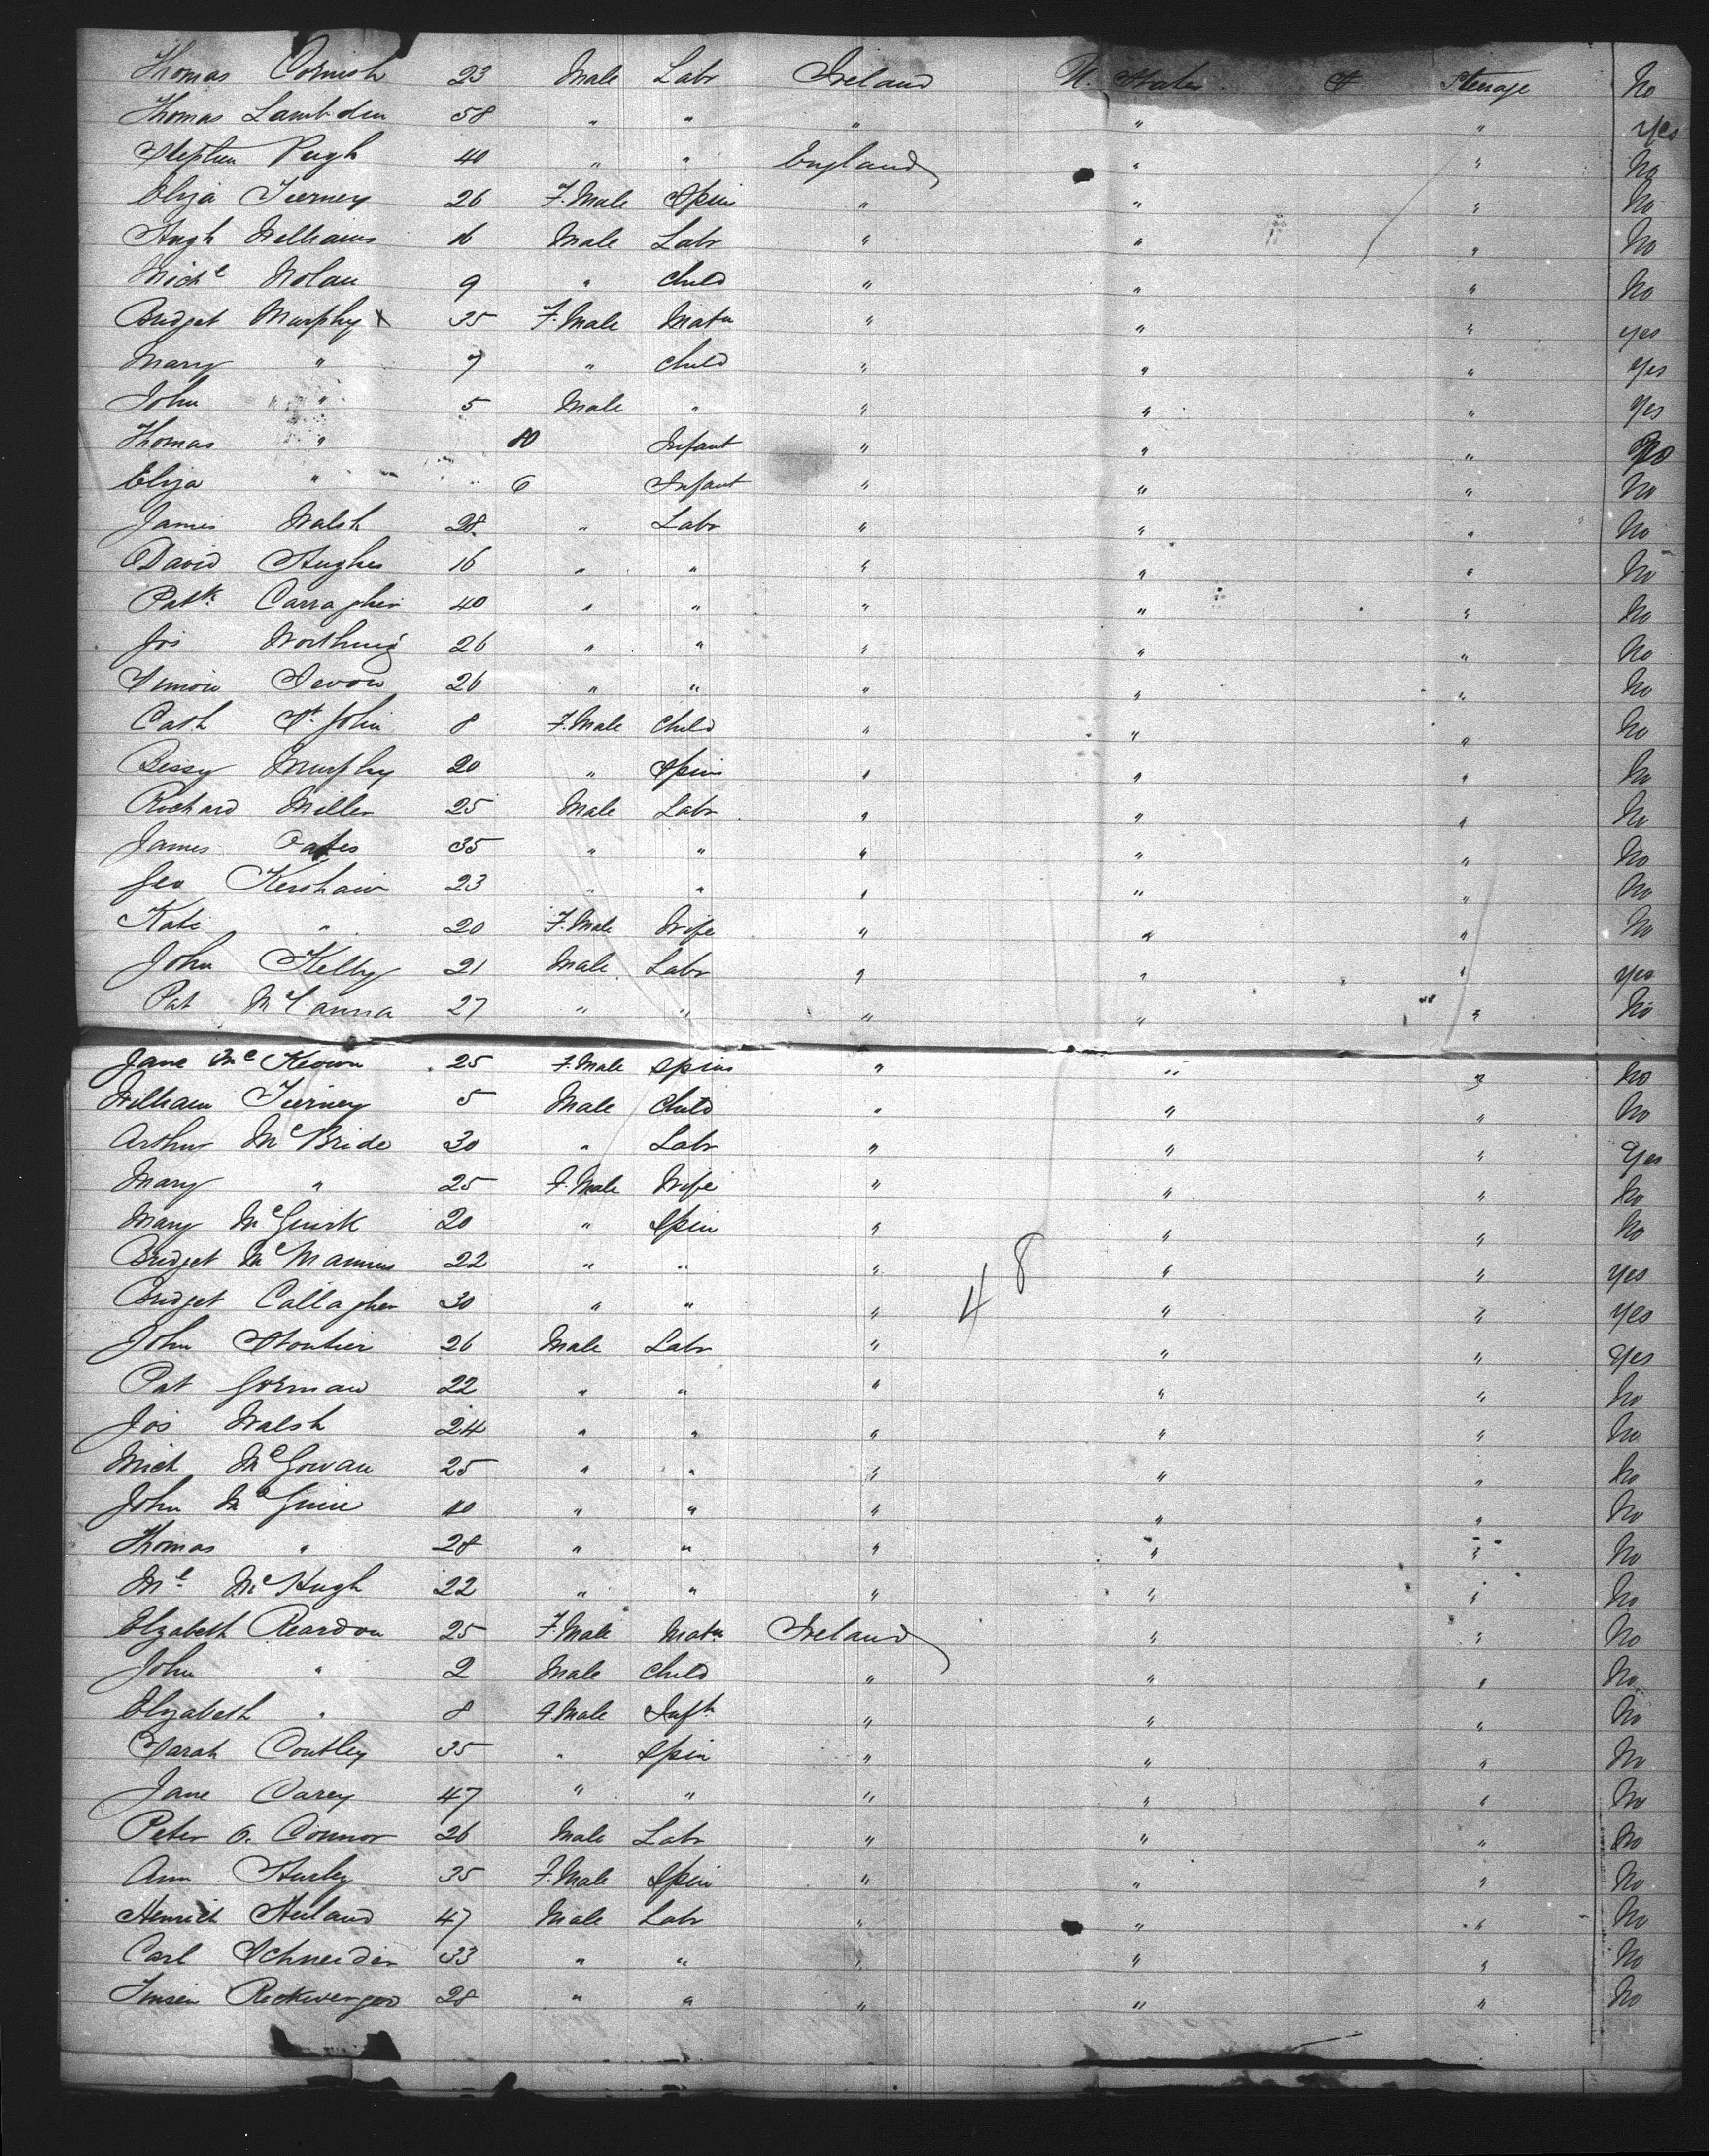 Thomas Cornish 23 Male Labr Ireland U. States Steerage No
Thomas Lambden 58 " " " " " Yes
Stephen Pugh 40 " " England " " No
Eliza Tierney 26 F.Male Spin " " " No
Hugh Williams 16 Male Labr " " " No
Michl Nolan 9 " Child " " " No
Bridget Murphy x 35 F.Male Matn " " " yes
Mary " 7 " Child " " " Yes
John " 5 Male " " " " Yes
Thomas " 10 Infant " " "
Eliza " 6 Infant " " " No
James Walsh 28 " Labr " " " No
David Hughes 16 " " " " " No
Patk. Carragher 40 " " " " " No
Jos 26 " " " " " No
Simon 26 " " " " " No
Cath St. John 8 F.Male Child " " " No
Bessy Murphy 20 " Spin " " " No
Richard Miller 25 Male Labr " " " No
James Oates 35 " " " " " No
Geo Kershaw 23 " " " " " No
Kate " 20 F.Male Wife " " " No
John Kelly 21 Male Labr " " " yes
Pat McCanna 27 " " " " " No
Jane McKeown 25 F.Male Spin " " " No
William Tierney 5 Male Child " " " No
Arthur McBride 30 " Labr " " " Yes
Mary " 25 F.Male Wife " " " No
Mary McGuirk 20 " Spin " " " No
Bridget McMannus 22 " " " " " Yes
Bridget Callagher 30 " " " 48 " " Yes
John 26 Male Labr " " " Yes
Pat Gorman 22 " " " " " No
Jos Walsh 24 " " " " " No
Mich McGowan 25 " " " " " No
John McGuire " " " " " No
Thomas " 28 " " " " " No
Ml. McHugh 22 " " " " " No
Elizabeth Reardon 25 F.Male Matn Ireland " " No
John " 2 Male Child " " " No
Elizabeth " 8 F.Male Inft " " " No
Sarah Coutley 35 " Spin " " " No
Jane Carey 47 " " " " " No
Peter O. Connor 26 Male Labr " " " No
Ann Hurley 35 F.Male Spin " " " No
Henrich Heiland 47 Male Labr " " " No
Carl Schneider 33 " " " " " No
28 " " " " " No